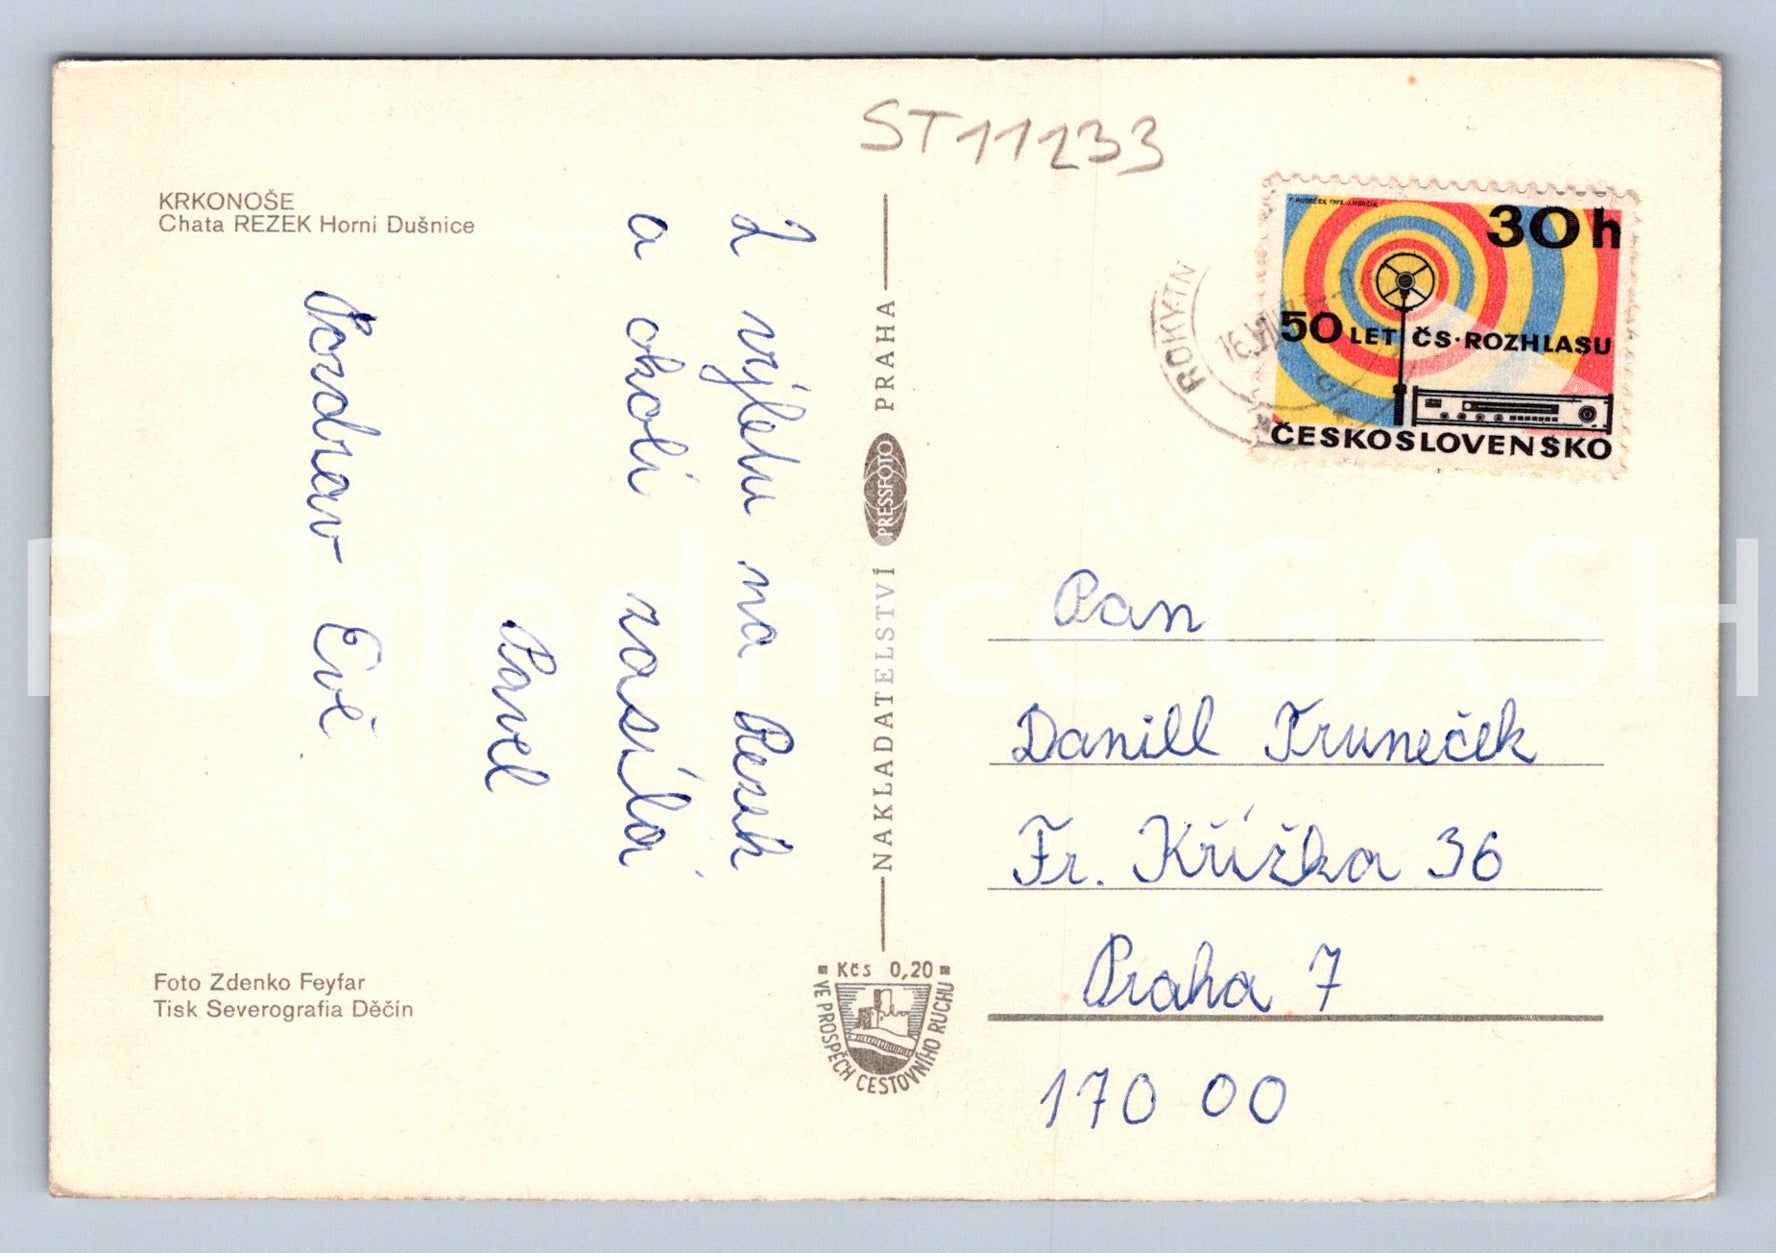 ST11233
KRKONOŠE
Chata REZEK Horní Dušnice
Z výletu na Rezek
a okolí zasílá
Pavel
Pozdrav Evě.
Foto Zdenko Feyfar
Tisk Severografia Děčín
NAKLADATELSTVÍ PRESSFOTO PRAHA
Kčs 0,20
VE PROSPĚCH CESTOVNÍHO RUCHU
30 h
50 LET ČS·ROZHLASU
ČESKOSLOVENSKO
ROKYTN
Pan
Daniel Truneček
Fr. Křížka 36
Praha 7
170 00
Pohlednice GASH